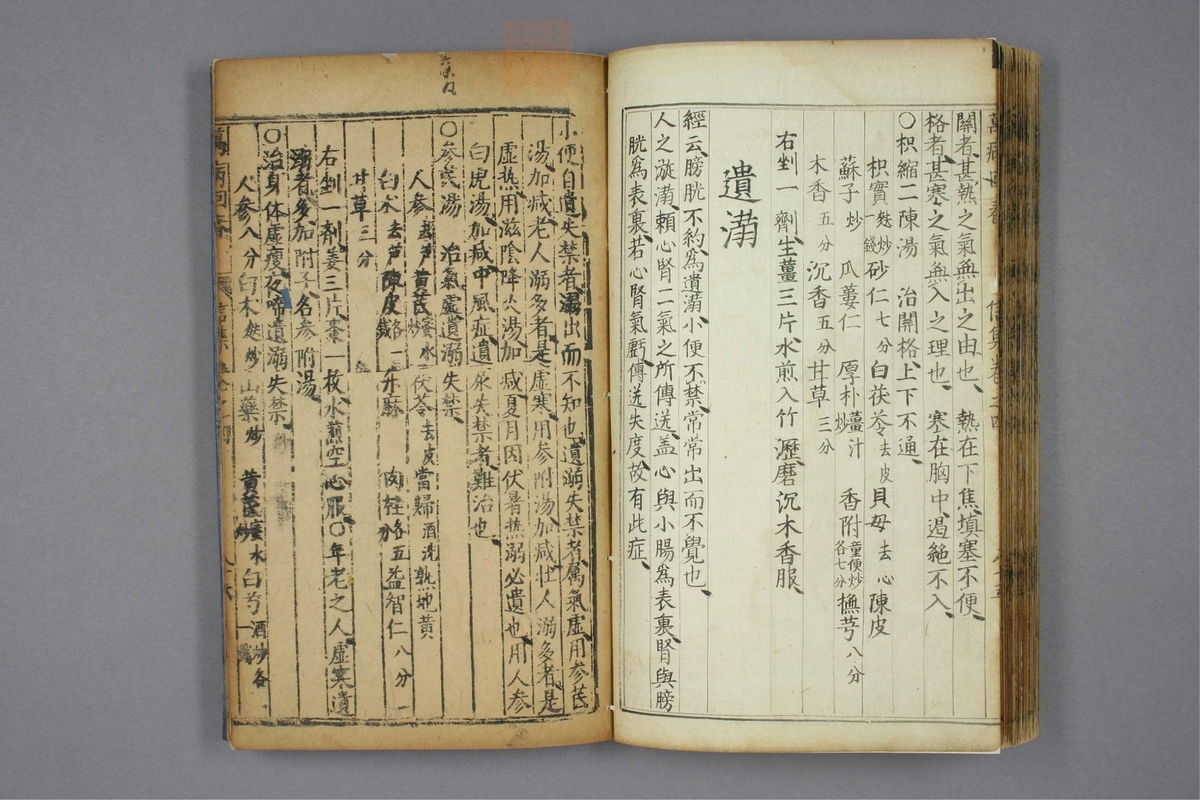 關者甚熱之氣無出之由也 熱在下焦填塞不便
格者甚塞之氣無入之理也 塞在胸中遏絶不入
〇枳縮二陳湯 治關格上下不通
枳實麩炒一錢 砂仁七分 白茯苓去皮 貝母去心 陳皮
蘇子炒 瓜蔞仁 厚朴薑汁炒 香附童便炒各七分 撫芎八分
木香五分 沉香五分 甘草三分
右剉一劑生薑三片水煎入竹瀝磨沉木香服
遺溺
經云膀胱不約爲遺溺小便不禁常常出而不覺也
人之漩溺賴心腎二氣之所傳送盖心與小腸爲表裏腎與膀
胱爲表裏若心腎氣虧傳送失度故有此症
小便自遺失禁者溺出而不知也遺溺失禁者屬氣虛用參芪
湯加減老人溺多者是虛寒用參附湯加減壯人溺多者是
虛熱用滋陰降火湯加減夏月因伏暑熱溺必遺也用人參
白虎湯加減中風症遺尿失禁者難治也
〇參芪湯 治氣虛遺溺失禁
人參去芦 黃芪蜜水炒 茯苓去皮 當歸酒洗 熟地黃
白朮去芦 陳皮各一錢 升麻 肉桂各五分 益智仁八分
甘草三分
右剉一劑姜三片棗一枚水煎空心服〇年老之人虛寒遺
溺者多加附子名參附湯
〇治身体虛瘦夜啼遺溺失禁
人參八分 白朮麩炒 山藥炒 黃芪蜜水炒 白芍酒炒各一錢